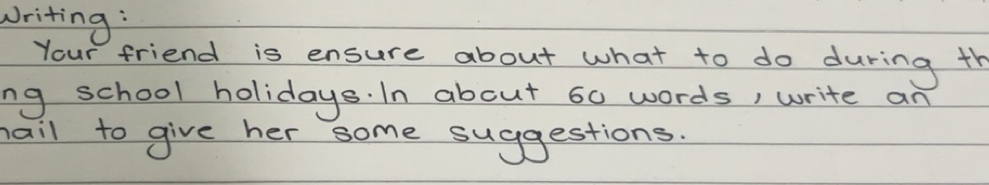 Writing:
Your friend is ensure about what to do during th
ng school holidays. In about 60 words, write an
ail to give her some suggestions.